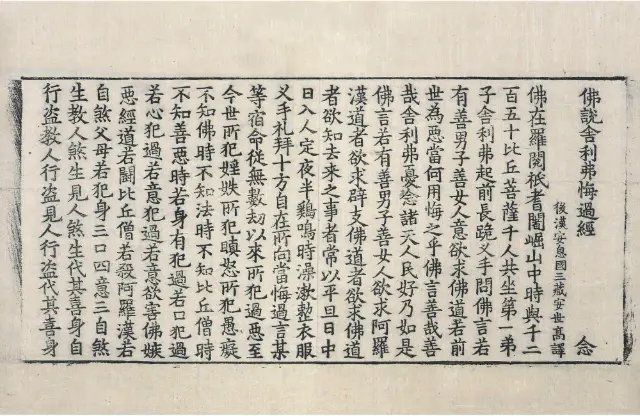 佛說舍利弗悔過經 念
後漢安息國三藏安世高譯
佛在羅閱祇耆闍崛山中時與千二
百五十比丘菩薩千人共坐第一弟
子舍利弗起前長跪叉手問佛言若
有善男子善女人意欲求佛道若前
世為惡當何用悔之乎佛言善哉善
哉舍利弗憂愍諸天人民好乃如是
佛言若有善男子善女人欲求阿羅
漢道者欲求辟支佛道者欲求佛道
者欲知去來之事者常以平旦日中
日入人定夜半鷄鳴時澡漱整衣服
叉手礼拜十方自在所向當悔過言某
等宿命從無數劫以來所犯過惡至
今世所犯婬妷所犯瞋怒所犯愚癡
不知佛時不知法時不知比丘僧時
不知善惡時若身有犯過若口犯過
若心犯過若意犯過若意欲害佛嫉
惡經道若鬪比丘僧若煞阿羅漢若
自煞父母若犯身三口四意三自煞
生教人煞生見人煞生代其喜身自
行盜教人行盜見人行盜代其喜身